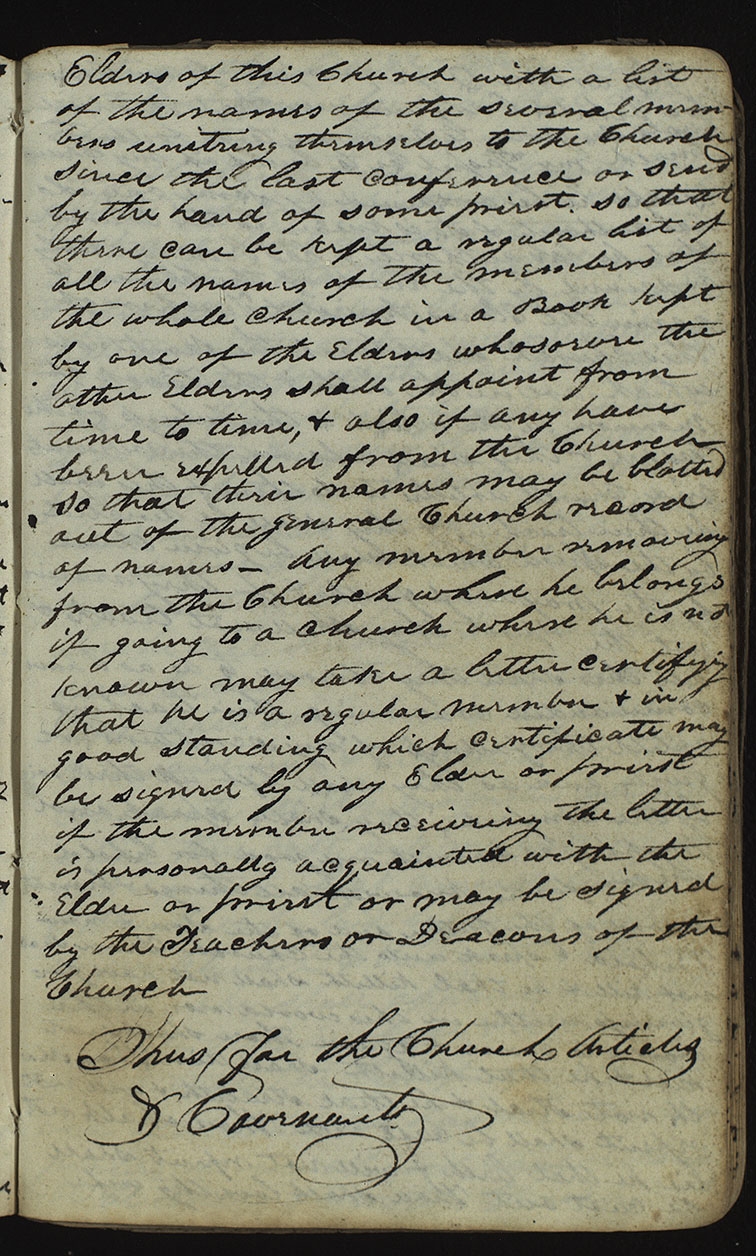 Elders of this Church with a list
of the names of the several mem-
bers uniteing themselves to the Church
since the last conference or send
by the hand of some priest. so that
there can be kept a regular list of
all the names of the members of
the whole church in a Book kept
by one of the Elders whosoever the
other Elders shall appoint from
time to time, & also if any have
been expelled from the Church
so that their names may be blotted
out of the general Church record
of names- Any member removeing
from the Church where he belongs
if going to a church where he is not
known may take a letter certifying
that he is a regular member & in
good standing which certificate may
be signed by any Elder or priest
if the member receiveing the letter
is personally acquainted with the
Elder or priest or may be signed
by the Teachers or Deacons of the
Church
Thus far the Church Articles
& Covenants